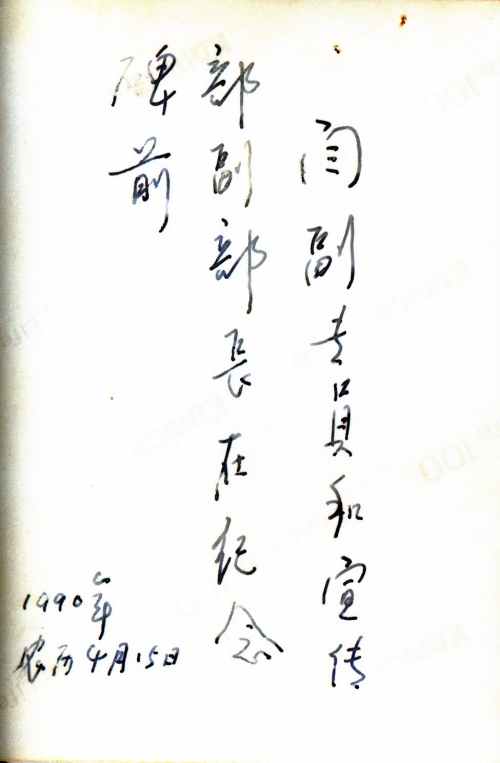 闫副专员和宣传
部副部長在纪念
碑前
1990年
农历4月15日